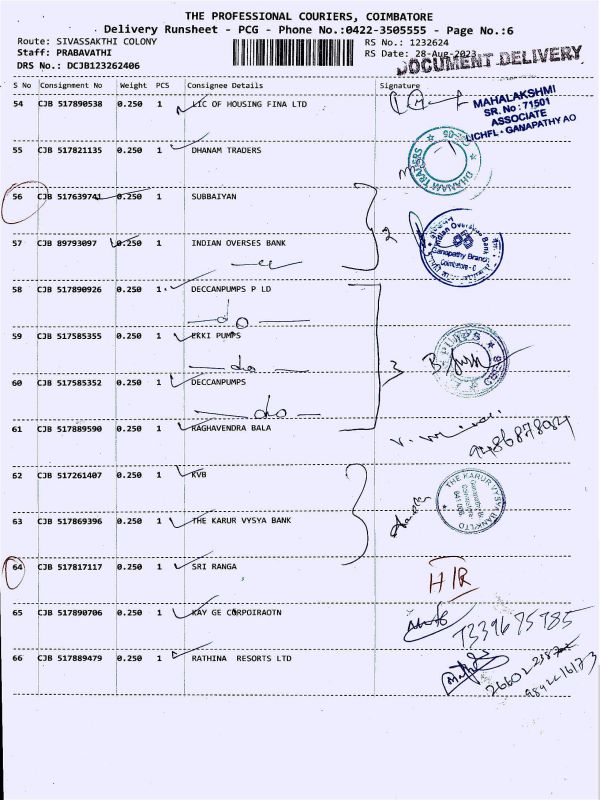 THE PROFESSIONAL COURIERS, COIMBATORE
Delivery Runsheet - PCG - Phone No.:0422-3505555 - Page No.:6
Route: SIVASSAKTHI COLONY
RS No.: 1232624
Staff: PRABAVATHI
RS Date: 28-Aug-2023
DOCUMENT DELIVERY
DRS No.: DCJB123262406
S No Consignment No Weight PCS Consignee Details Signature
54 CJB 517890538 0.250 1 LIC OF HOUSING FINA LTD
MAHALAKSHMI
SR. No : 71501
ASSOCIATE
LICHFL - GANAPATHY AO
55 CJB 517821135 0.250 1 DHANAM TRADERS
DHANAM TRADERS
56 CJB 517639741 0.250 1 SUBBAIYAN
2
57 CJB 89793097 0.250 1 INDIAN OVERSES BANK
Indian Overseas Bank
Ganapathy Branch
Coimbatore - 6
58 CJB 517890926 0.250 1 DECCANPUMPS P LD
do
59 CJB 517585355 0.250 1 EKKI PUMPS
do
3
PUMPS
60 CJB 517585352 0.250 1 DECCANPUMPS
do
61 CJB 517889590 0.250 1 RAGHAVENDRA BALA
62 CJB 517261407 0.250 1 KVB
THE KARUR VYSYA BANK LTD
63 CJB 517869396 0.250 1 THE KARUR VYSYA BANK
64 CJB 517817117 0.250 1 SRI RANGA
H/R
65 CJB 517890706 0.250 1 KAY GE CORPOIRAOTN
66 CJB 517889479 0.250 1 RATHINA RESORTS LTD